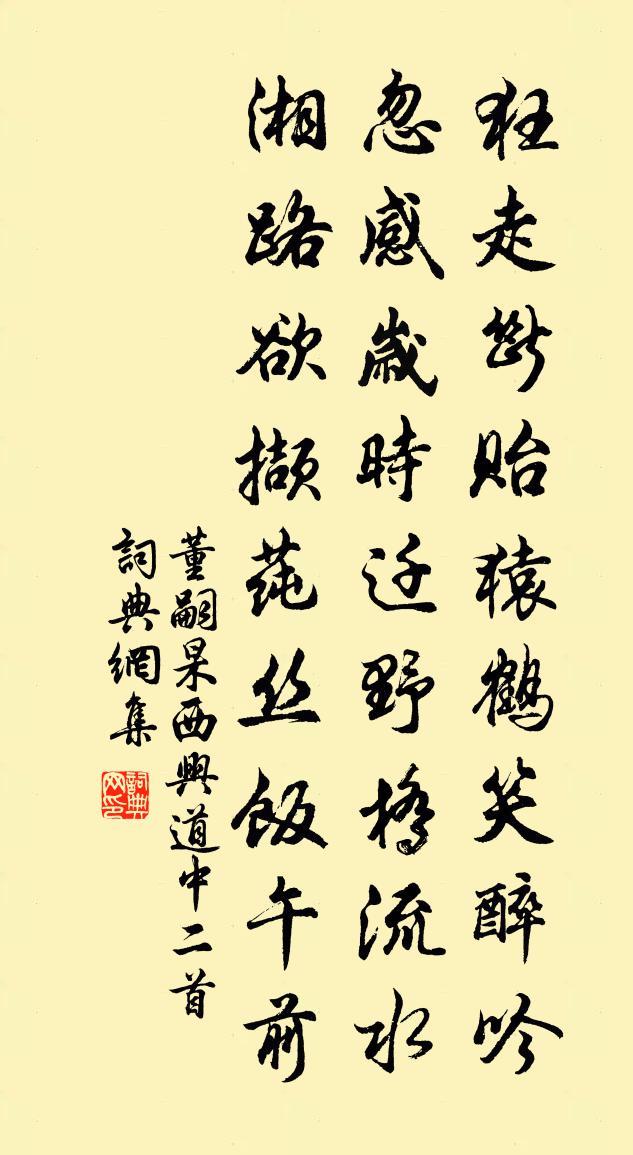 狂走斷貽猿鶴笑醉吟
忽感歲時迁野橋流水
湘路欲擷莼丝飯午前
董嗣杲西興道中二首
詞典網集
詞典网印